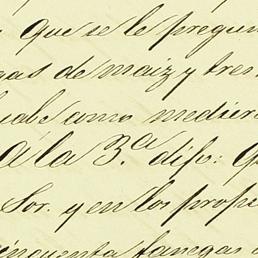 que se le pregun
gas de maiz y tres
ual como mediero
A la 3.ª dijo: q
Sor. y en los prope
cincuenta fanegas